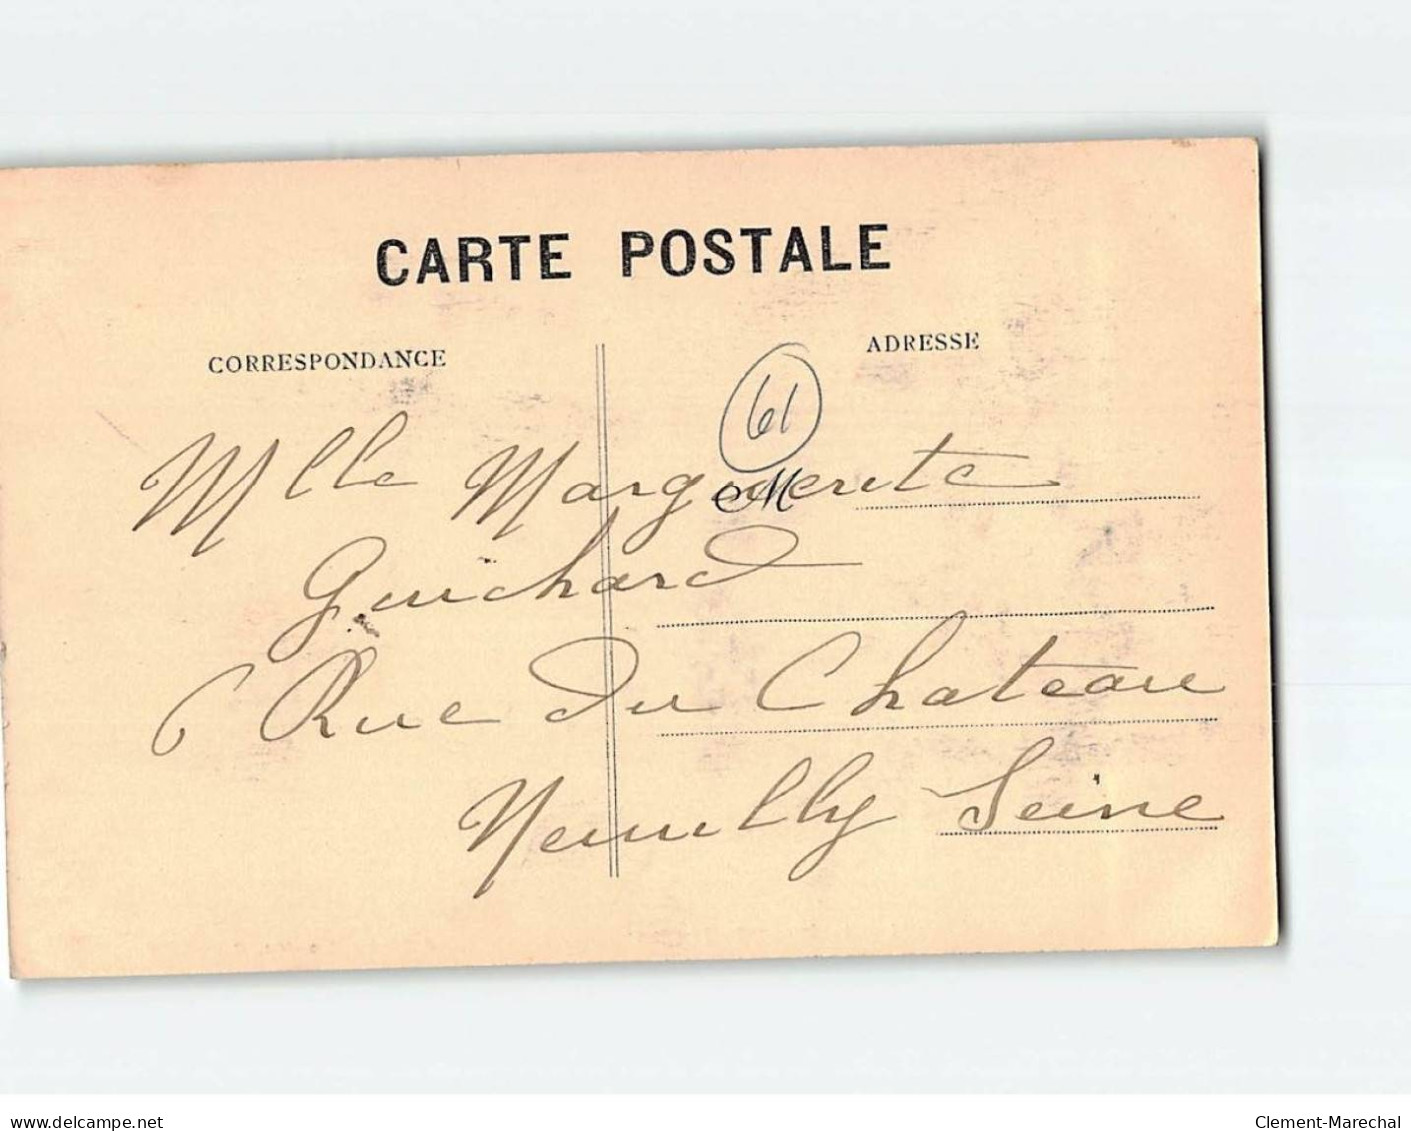 CARTE POSTALE
CORRESPONDANCE
ADRESSE
61
M
Mlle Marguerite
Guichard
6 Rue du Chateau
Neuilly Seine
www.delcampe.net
Clement-Marechal